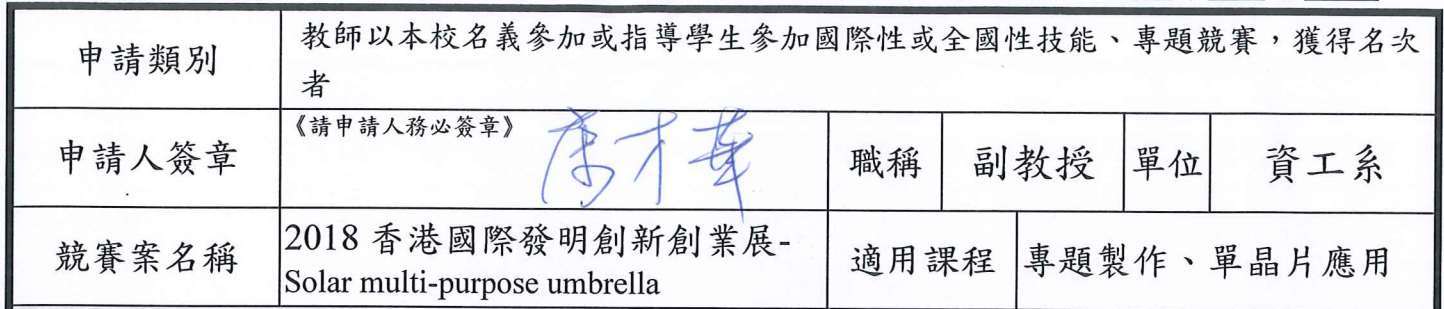 申請類別
教師以本校名義參加或指導學生參加國際性或全國性技能、專題競賽，獲得名次
者
申請人簽章
《請申請人務必簽章》
職稱
副教授
單位
資工系
競賽案名稱
2018 香港國際發明創新創業展-
Solar multi-purpose umbrella
適用課程
專題製作、單晶片應用